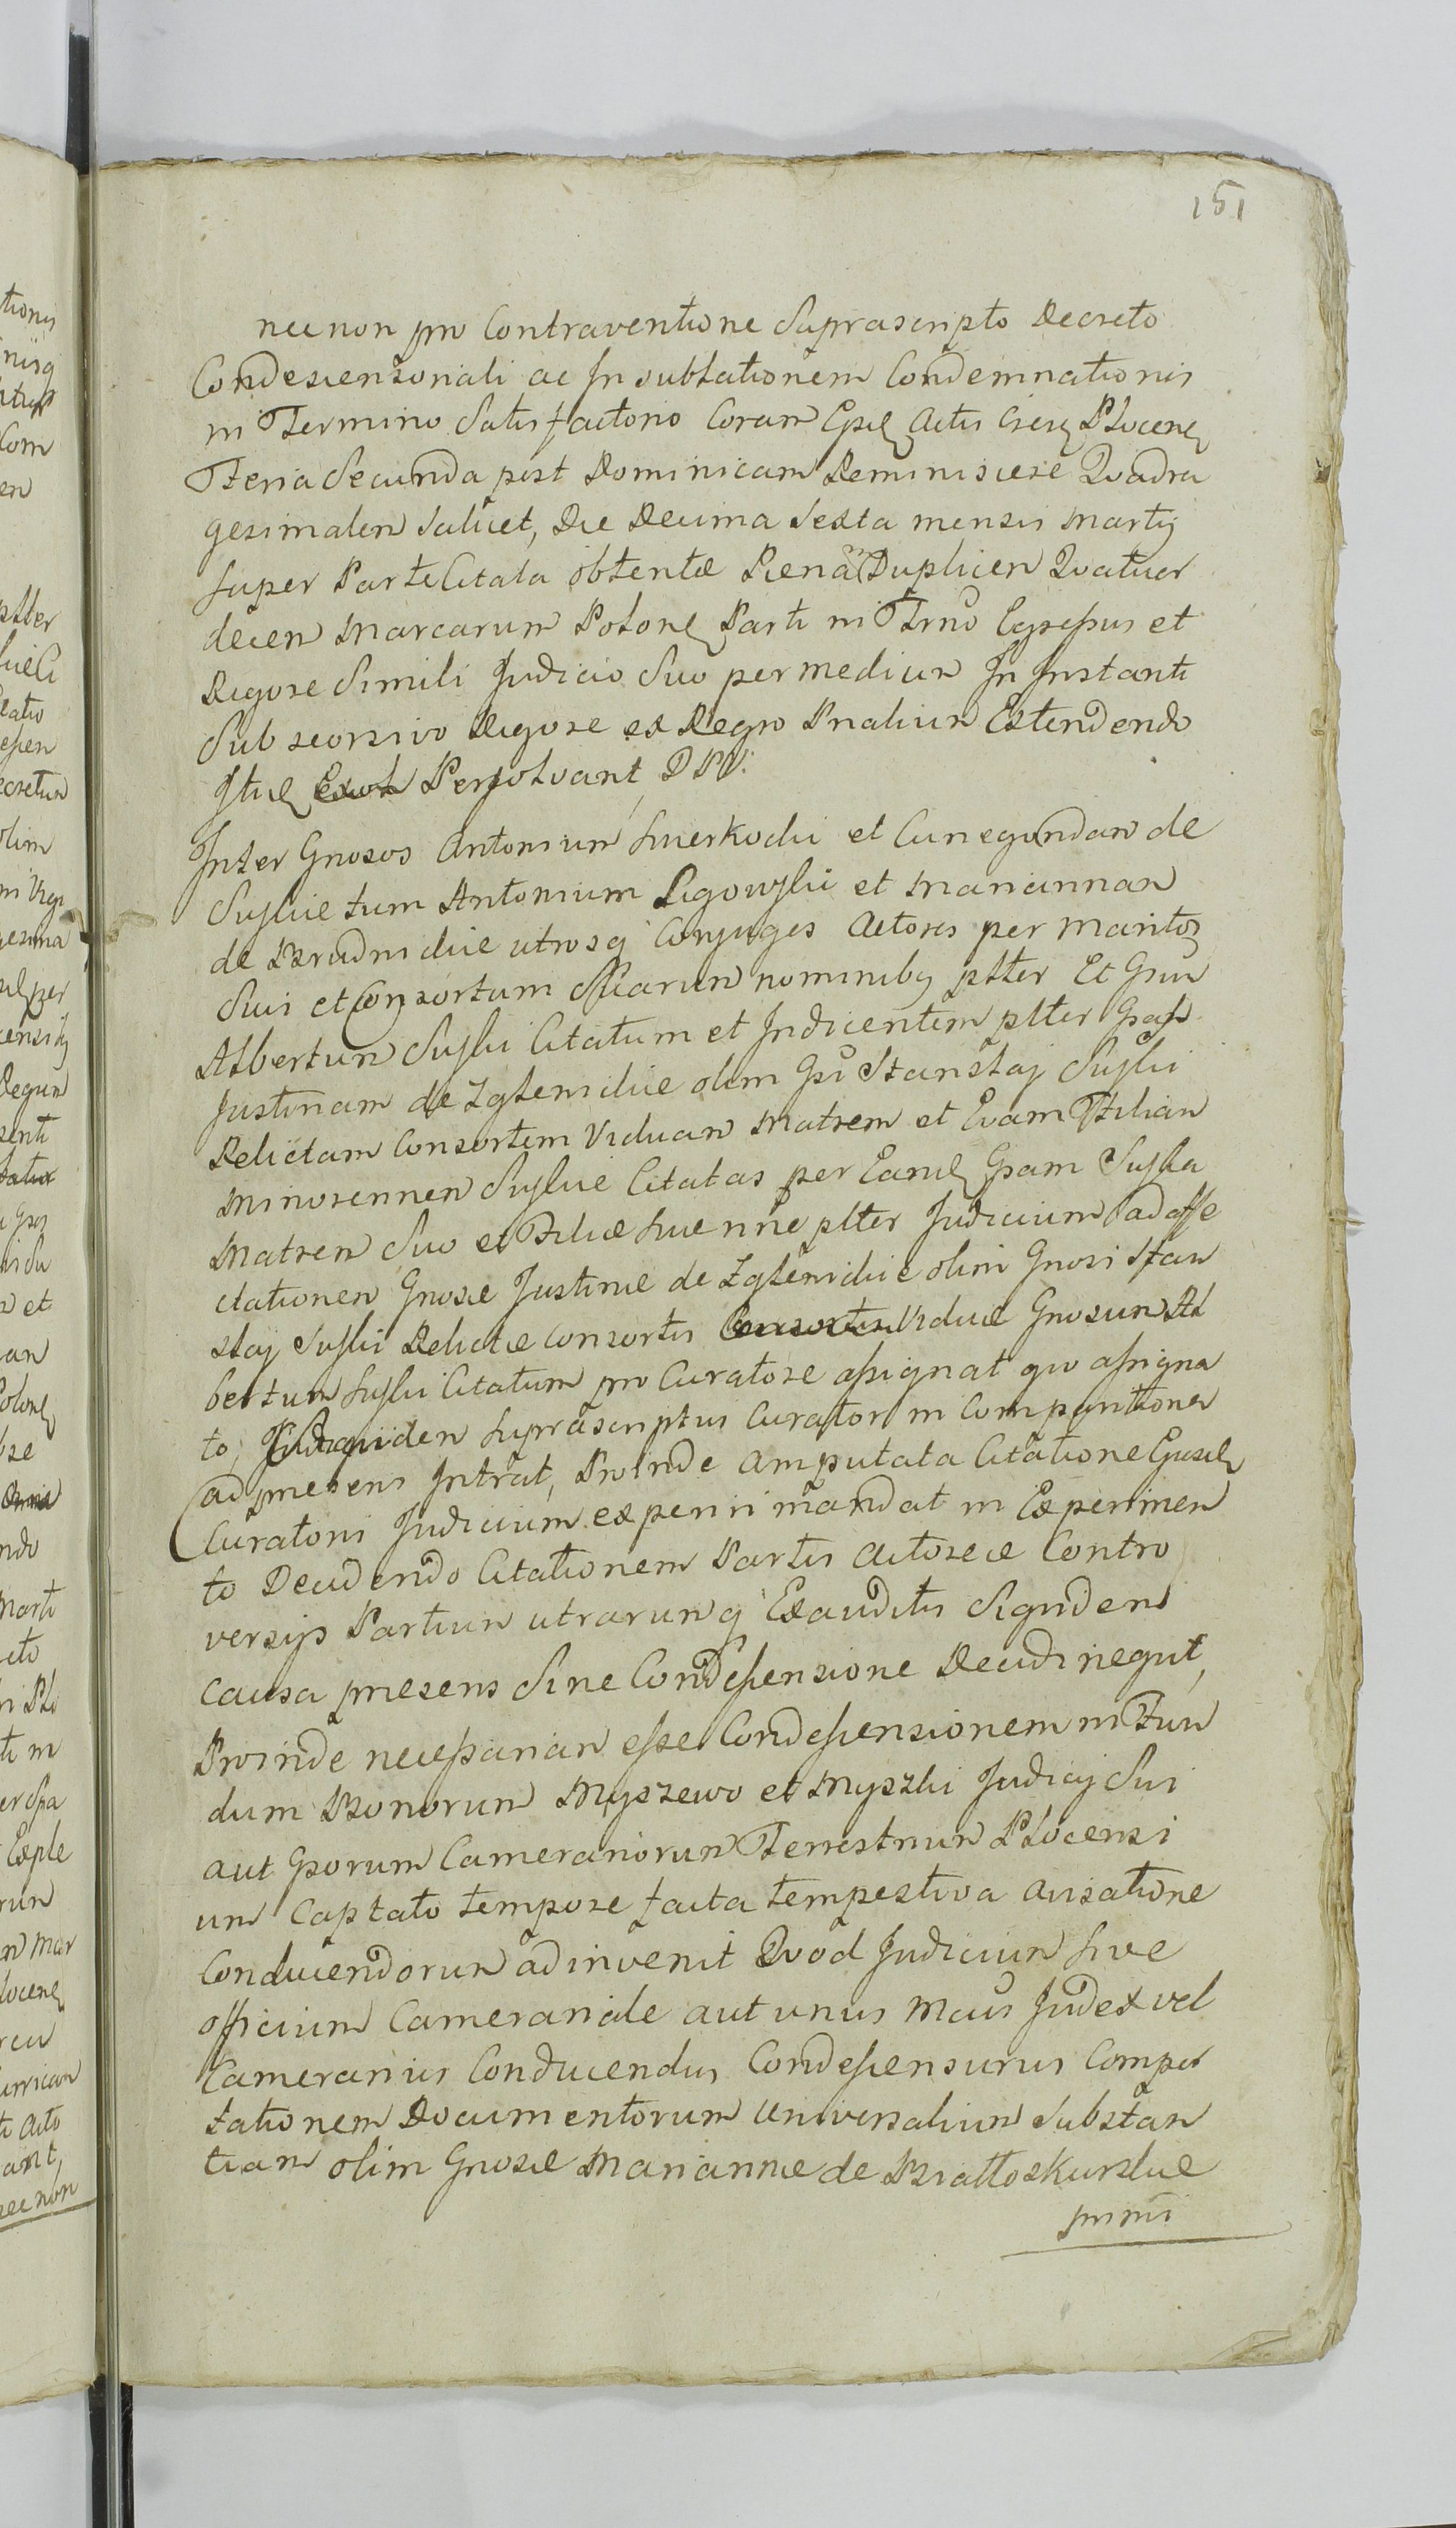 151
nec non pro Contraventione Suprascripto Decreto
Condescensionali ac In sublationem Condemnationis
in Termino Satisfactorio Coram Actis Plocen
Feria Secunda post Dominicam Reminiscere Quadra
gesimalem Saluet, Die Decima Sexta mensis Martij
super Parte Citata obtentæ Pænā Duplicem Quatuor
decem Marcarum Polon Parti in Trno Egressus et
Rigore Simili Judicio Suo per medium In Instanti
Sub seorsivo Rigore ex Regro Pnalium Extendendo
Persolvant,
Inter Gnosos Antonium et Cunegundam de
tum Antonium et Mariannam
de utrosq Conjuges Actores per Maritos
Suis et Consortum Suarum nominibq ptter Et Gsum
Albertum Suski Citatum et Indicentem ptter
Justinam de olim Gsi Stanslaj Suski
Relictam Consortem Viduam Matrem et Evam Filiam
Minorennem Suskie Citatas per Gsam Suska
Matrem Suo et Filiæ Suæ nne ptter Judicium ad affe
ctationem Gnosæ Justinæ de olim Gnosi Stan
slaj Suski Relictæ Consortis Viduæ Gnosum Al
bertum Suski Citatum pro Curatore assignat quo assigna
to, Suprascriptus Curator in Comparitionem
ad præsens Intrat, Proinde amputata Citatione
Curatoris Judicium experiri mandat in Experimen
to Decidendo Citationem Partis Actoreæ Contro
versijs Partium utrarumq Exauditis Siquidem
Causa præsens Sine Condescensione Decidi nequit,
Proinde necessariam esse Condescensionem in Fun
dum Bonorum Myszewo et Myszki Judicij Sui
aut Gsorum Camerariorum Terrestrium Plocensi
um Captato tempore facta tempestiva avisatione
Conducendorum adinvenit Quod Judicium sive
officium Camerariale aut unus Judex vel
Camerarius Conducendus Condescensurus Compor
tationem Documentorum Universalium Substan
tiam olim Gnosæ Mariannæ de Białłoskurskie
primi